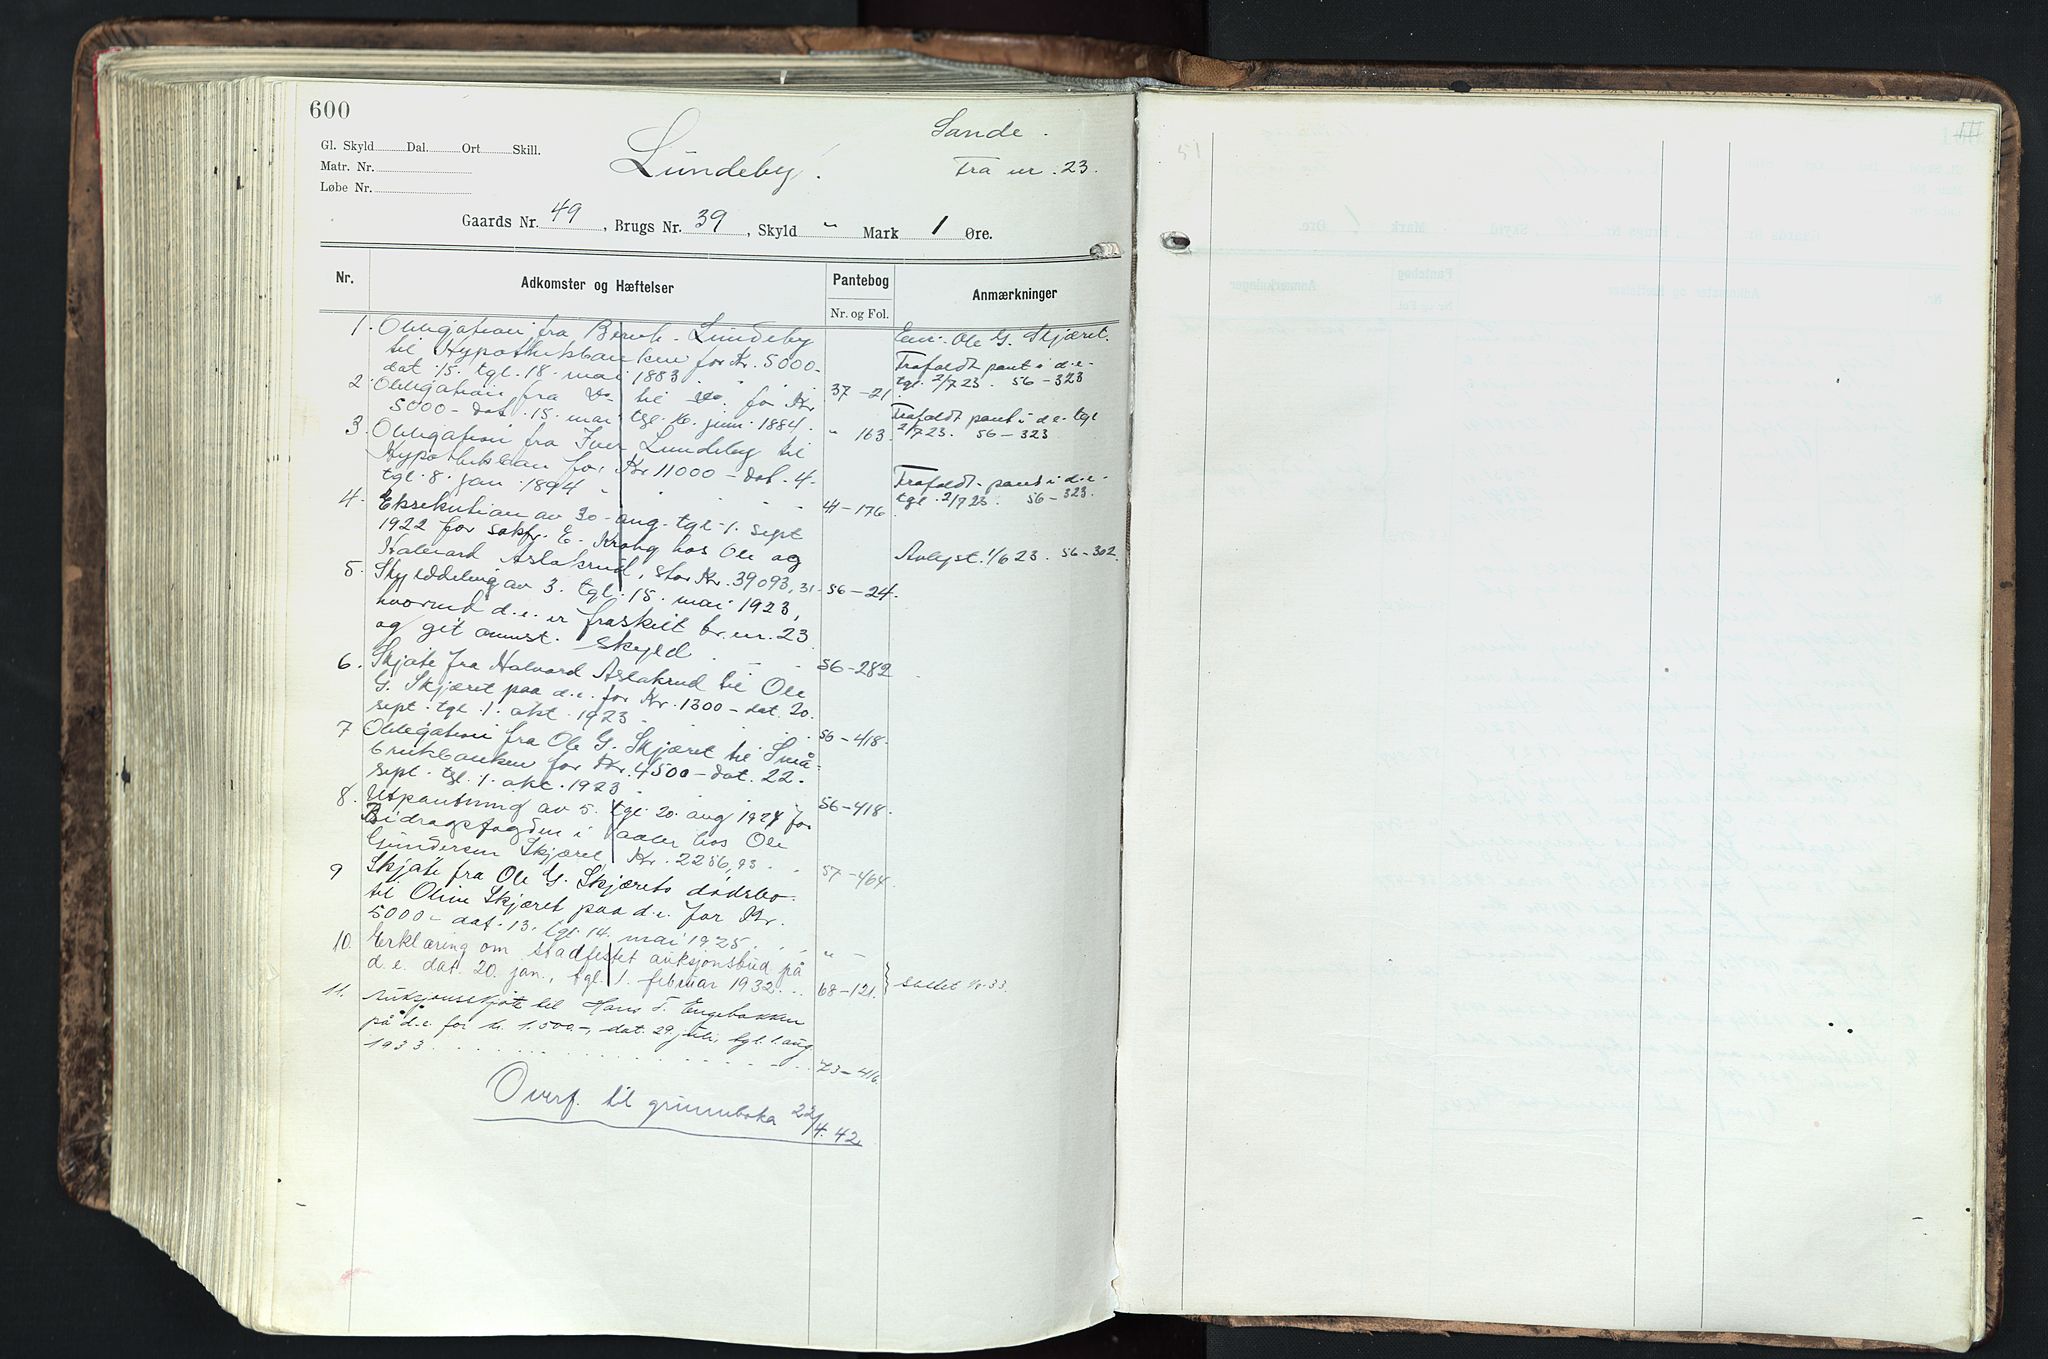 600
Sande.
Gl. Skyld Dal. Ort Skill.
Matr. Nr.
Løbe Nr.
Lundeby.
Fra nr. 23.
Gaards Nr. 49, Brugs Nr. 39, Skyld " Mark 1 Øre.
Nr. Adkomster og Hæftelser Pantebog Anmærkninger
Nr. og Fol.
1. Obligation fra Bernh. Lundeby
til Hypothekbanken for Kr. 5000-
dat 15. tgl. 18. mai 1883 37-21.
Ole G. Skjæret.
Frafaldt pant i d.e.
tgl. 2/7 23. 56-323
2. Obligation fra Do til Do. for Kr
5000- dat. 15. mai tgl. 16. juni 1884. " 163
Frafaldt pant i d.e. tgl
2/7 23. 56-323
3. Obligation fra Iver Lundeby til
Hypothekban for Kr 11000- dat. 4.
tgl. 8. jan. 1894 41-176
Frafaldt pant i d.e.
tgl. 2/7 23. 56-323.
4. Eksekution av 30. aug. tgl. 1. sept
1922 for sakf. E. Krohg hos Ole og
Halvard Aslakrud, stor Kr. 39093,31. 56-24.
Avlyst. 1/6 23. 56-302.
5. Skylddeling av 3. tgl. 15. mai 1923,
hvorved d.e. er fraskilt br. nr. 23
og git anmst. skyld 56-282
6. Skjøte fra Halvard Aslakrud til Ole
G. Skjæret paa d.e. for Kr. 1300- dat. 20.
sept. tgl. 1. okt. 1923 56-418.
7 Obligation fra Ole G. Skjæret til Små-
brukbanken for Kr. 4500- dat. 22.
sept. tgl. 1. okt. 1923 56-418.
8. Utpantning av 5. tgl. 20. aug 1924 for
Bidragsfogden i Vaaler hos Ole
Gundersen Skjæret, Kr. 2256,93 57-464.
9 Skjøte fra Ole G. Skjærets dødsbo
til Oline Skjæret paa d.e. for Kr.
5000- dat. 13. tgl. 14. mai 1925. " -
10. Erklæring om stadfestet auksjonsbud på
d.e. dat. 20. jan., tgl. 1. februar 1932 68-121.
Slettet 33.
11. Auksjonsskjøte til Hans T. Engebakken
på d.e. for kr. 1.500.-, dat. 29. juli, tgl. 1. aug
1933 73-416.
Overf. til grunnboka 22/4.42.
51